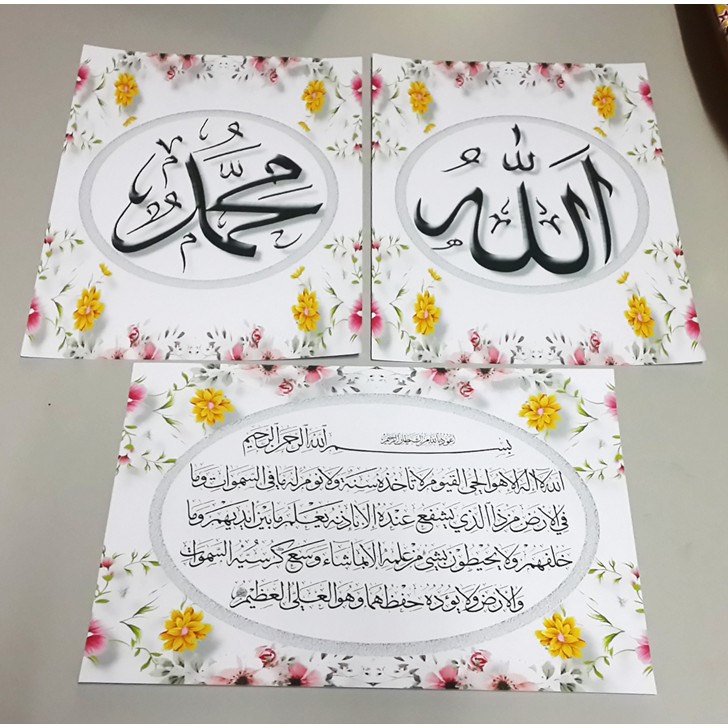 الله
محمد
أعوذ بالله من الشيطان الرجيم
بسم الله الرحمن الرحيم
الله لا اله الا هو الحي القيوم لا تأخذه سنة ولا نوم له ما في السموات وما
في الارض من ذا الذي يشفع عنده الا باذنه يعلم ما بين ايديهم وما
خلفهم ولا يحيطون بشيء من علمه الا بما شاء وسع كرسيه السموات
والارض ولا يؤده حفظهما وهو العلي العظيم